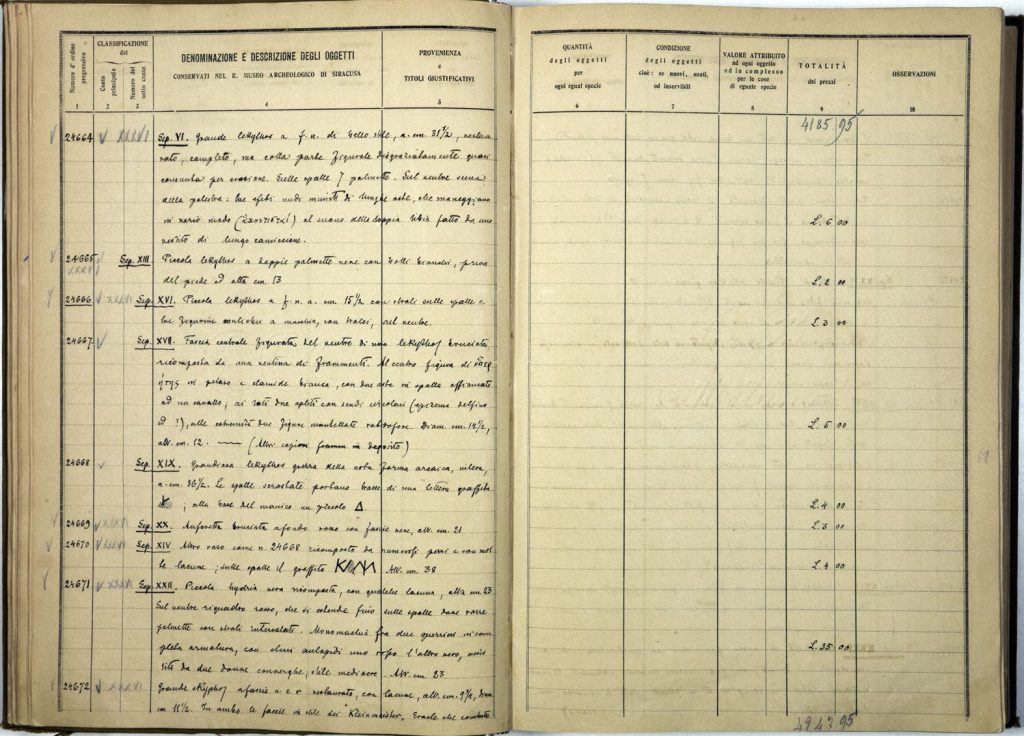 Numero d'ordine progressivo
CLASSIFICAZIONE
del
Conto principale
Numero del sotto conto
DENOMINAZIONE E DESCRIZIONE DEGLI OGGETTI
CONSERVATI NEL R. MUSEO ARCHEOLOGICO DI SIRACUSA
PROVENIENZA
e
TITOLI GIUSTIFICATIVI
QUANTITÀ
degli oggetti
per
ogni egual specie
CONDIZIONE
degli oggetti
cioè: se nuovi, usati,
od inservibili
VALORE ATTRIBUITO
ad ogni oggetto
ed in complesso
per le cose
di eguale specie
TOTALITÀ
dei prezzi
OSSERVAZIONI
1 2 3 4 5 6 7 8 9 10
4185 95
24664 Sep. VI. Grande lekythos a f. n. di bello stile, a. cm. 31 1/2, restau-
rato, completo, ma colla parte figurata disgraziatamente quasi
consunta per erosione. Sulle spalle 7 palmette. Sul ventre scena
della palestra: tre efebi nudi muniti di lunghe aste, che maneggiano
in vario modo al suono della doppia tibia fatto da uno
vestito di lungo camicione.
L. 6 00
24665 Sep. XIII. Piccola lekythos a doppie palmette nere con tratti bianchi, priva
del piede ed alta cm. 13
L. 2 00
24666 Sep. XVI. Piccola lekythos a f. n. a. cm. 15 1/2 con strali sulle spalle e
tre figurine a macchia, con tralci, sul ventre.
L. 3 00
24667 Sep. XVII. Fascia centrale figurata del ventre di una lekythos bruciata
ricomposta da una ventina di frammenti. Al centro figura di
in petaso e clamide bianca, con due aste in spalla affiancato
ad un cavallo; ai lati due opliti con scudi circolari (episema delfino
ed ?), alle estremità due figure mantellate rabdofore. Diam. cm. 14 1/2,
alt. cm. 12. — (Altri copiosi framm. in deposito)
L. 5 00
24668 Sep. XIX. Grandiosa lekythos grezza della nota forma arcaica, intera,
a. cm. 36 1/2. Le spalle scrostate portano tracce di una lettera graffita
; alla base del manico un piccolo Δ
L. 4 00
24669 Sep. XX. Anforetta bruciata a fondo rosso con fascie nere, alt. cm. 21
L. 3 00
24670 Sep. XIV Altro vaso come n. 24668 ricomposto da numerosi pezzi e con mol-
te lacune; sulle spalle il graffito Alt. cm. 38
L. 4 00
24671 Sep. XXII. Piccola hydria nera ricomposta, con qualche lacuna, alta cm. 23
Sul ventre riquadro rosso, che si estende fino sulle spalle dove corre
palmette con strali intercalati. Monomachia fra due guerrieri in com-
pleta armatura, con clipei uno rosso l'altro nero, assi-
stiti da due donne; stile mediocre. Alt. cm. 23
L. 35 00
24672 Grande skyphos a fascie n. e r. restaurato, con lacune, alt. cm. 9 1/2, diam.
cm 11 1/2. In ambo le faccie in stile dei "Kleinmeister", Eracle che combatte
4247 95